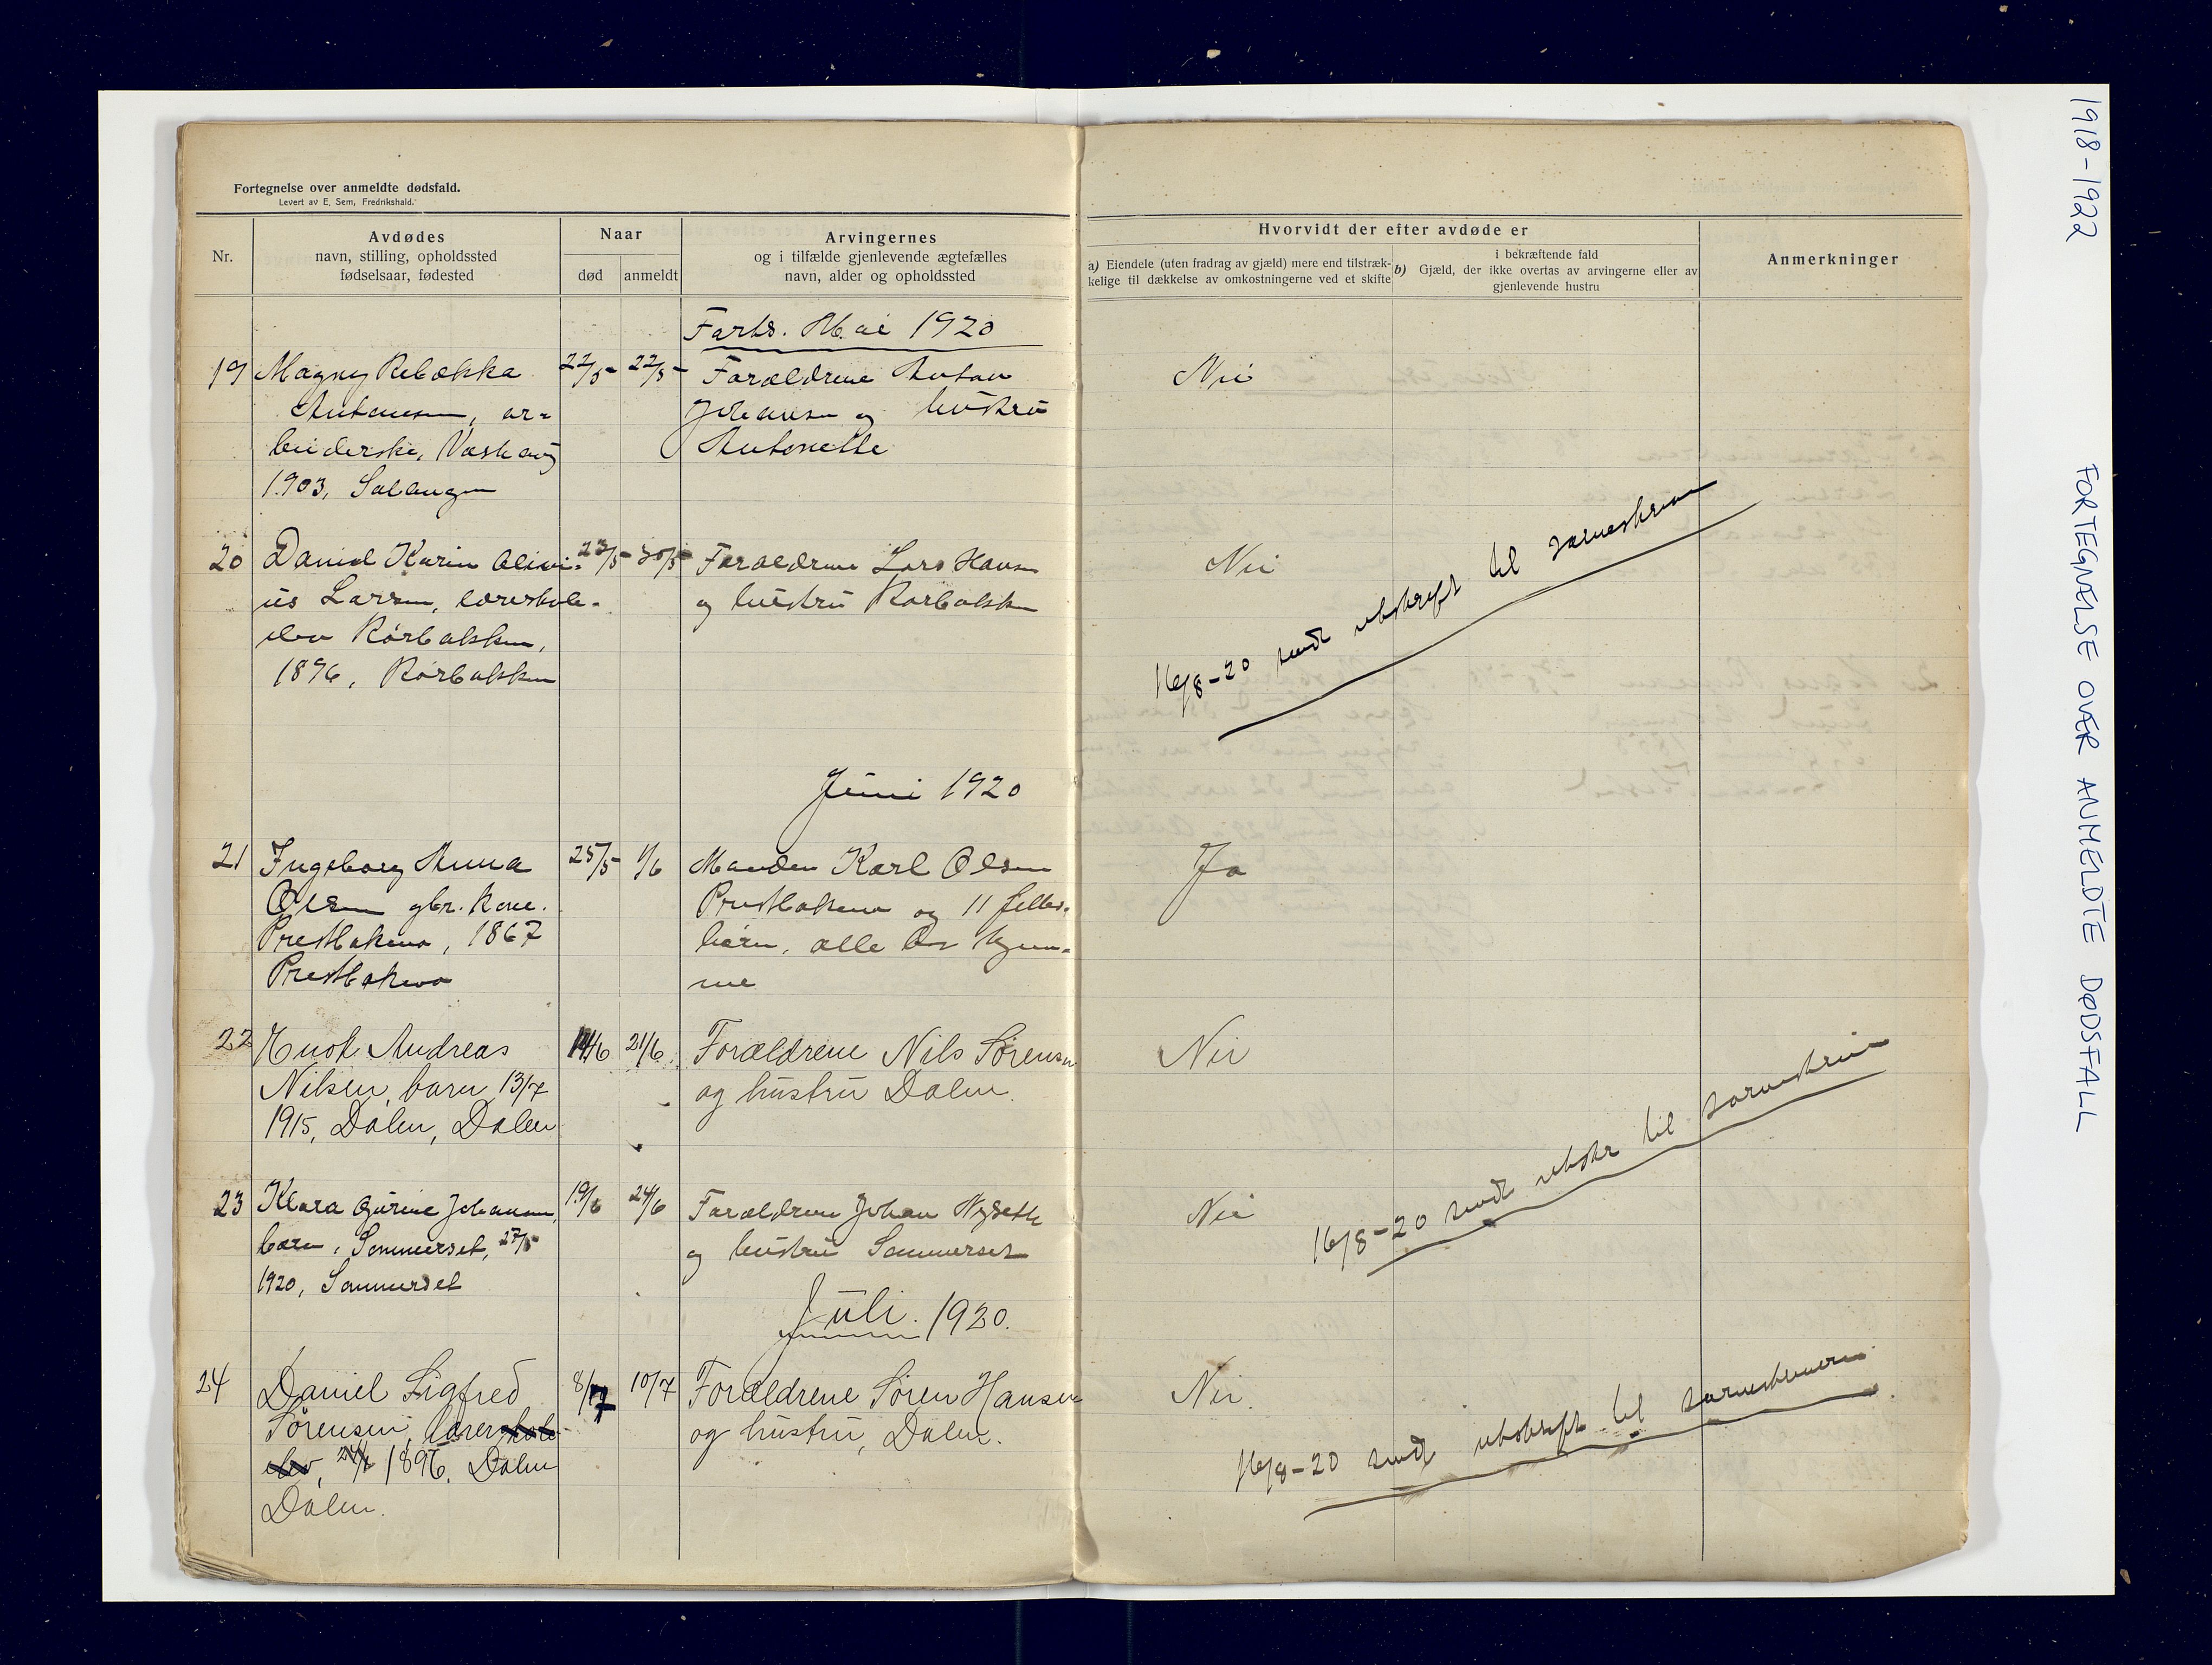 1918-1922
FORTEGNELSE OVER ANMELDTE DØDSFALL
Fortegnelse over anmeldte dødsfald.
Levert av E. Sem, Fredrikshald.
Nr.
Avdødes
navn, stilling, opholdssted
fødselsaar, fødested
Naar
død
anmeldt
Arvingernes
og i tilfælde gjenlevende ægtefælles
navn, alder og opholdssted
Hvorvidt der efter avdøde er
a) Eiendele (uten fradrag av gjæld) mere end tilstræk-
kelige til dækkelse av omkostningerne ved et skifte
i bekræftende fald
b) Gjæld, der ikke overtas av arvingerne eller av
gjenlevende hustru
Anmerkninger
Forts. Mai 1920
19 Magny Rebekka 22/5- 22/5- Forældrene Anton Nei
Antonsen, ar=
Johansen og hustru
beiderske,
Antonette
1903, Salangen
20 Daniel Karin Olivi= 23/5- 30/5- Forældrene Lars Hansen Nei
us Larsen, lærerskole-
og hustru Rørbakken
elev Rørbakken,
1896, Rørbakken
16/8-20 sendt utskrift til sorenskriver
Juni 1920
21 Ingeborg Anna 25/5- 1/6 Manden Karl Olsen Ja
Olsen gbr. kone.
Prestbakken og 11 felles-
Prestbakken, 1867
børn, alle bor hjem=
Prestbakken
me
22 Enok Andreas 14/6 21/6 Forældrene Nils Sørensen Nei
Nilsen, barn, 13/7
og hustru Dalen.
1915, Dalen, Dalen
23 Klara Gurine Johansen, 19/6 24/6 Forældrene Johan Nyseth Nei
barn, Sommerset, 27/5
og hustru Sommerset
1920, Sommerset
16/8-20 sendt utskr til sorenskriver
Juli 1920.
24 Daniel Sigfred 8/7 10/7 Forældrene Søren Hansen Nei.
Sørensen, lærerskole
og hustru, Dalen.
elev, 1896. Dalen
Dalen.
16/8-20 sendt utskrift til sorenskriveren